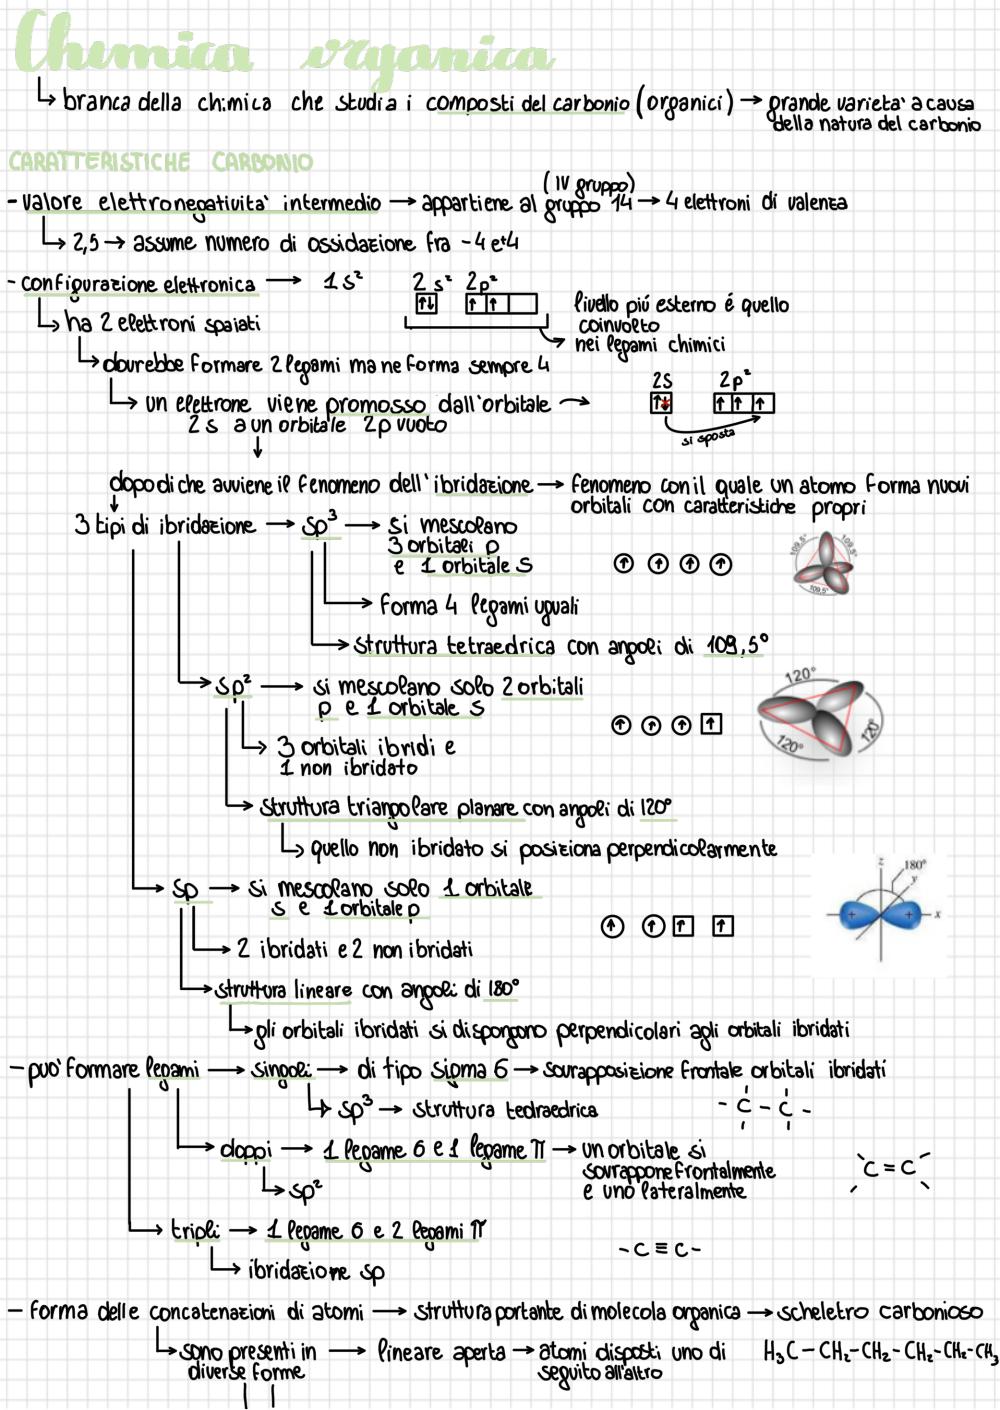 Chimica organica
↳ branca della chimica che studia i composti del carbonio (organici) → grande varieta' a causa
della natura del carbonio
CARATTERISTICHE CARBONIO
(IV gruppo)
- valore elettronegativita' intermedio → appartiene al gruppo 14 → 4 elettroni di valenza
↳ 2,5 → assume numero di ossidazione fra -4 e +4
- configurazione elettronica → 1s² 2s² 2p²
↑↓ ↑ ↑
livello piú esterno é quello
coinvolto
nei legami chimici
↳ ha 2 elettroni spaiati
↳ dovrebbe formare 2 legami ma ne forma sempre 4
2s 2p²
↳ un elettrone viene promosso dall'orbitale →
2s a un orbitale 2p vuoto
↑↓ ↑ ↑ ↑
si sposta
↓
dopodiche avviene il fenomeno dell'ibridazione → fenomeno con il quale un atomo forma nuovi
orbitali con caratteristiche propri
↓
3 tipi di ibridazione → sp³ → si mescolano
3 orbitali p
e 1 orbitale s
↑ ↑ ↑ ↑
109.5° 109.5°
109.5°
→ forma 4 legami uguali
→ struttura tetraedrica con angoli di 109,5°
→ sp² → si mescolano solo 2 orbitali
p e 1 orbitale s
↑ ↑ ↑ ↑
120°
120° 120°
↳ 3 orbitali ibridi e
1 non ibridato
→ struttura triangolare planare con angoli di 120°
↳ quello non ibridato si posiziona perpendicolarmente
→ sp → si mescolano solo 1 orbitale
s e 1 orbitale p
↑ ↑ ↑ ↑
z 180°
y
+ + x
→ 2 ibridati e 2 non ibridati
→ struttura lineare con angoli di 180°
↳ gli orbitali ibridati si dispongono perpendicolari agli orbitali ibridati
- puo' formare legami → singoli → di tipo sigma 6 → sovrapposizione frontale orbitali ibridati
↳ sp³ → struttura tedraedrica
- C - C -
→ doppi → 1 legame 6 e 1 legame π → un orbitale si
sovrappone frontalmente
e uno lateralmente
C = C
↳ sp²
→ tripli → 1 legame 6 e 2 legami π
- C ≡ C -
↳ ibridazione sp
- forma delle concatenazioni di atomi → struttura portante di molecola organica → scheletro carbonioso
↳ sono presenti in
diverse forme
→ lineare aperta → atomi disposti uno di
seguito all'altro
H₃C-CH₂-CH₂-CH₂-CH₂-CH₃